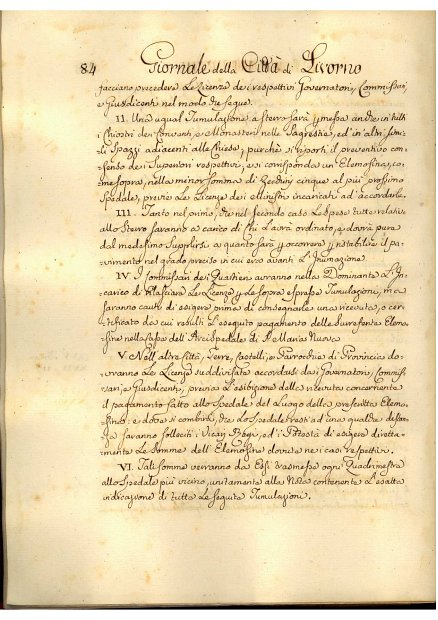 84 Giornale della Città di Livorno
facciano precedere le Licenze dei respettivi Governatori, Commissari,
e Giusdicenti nel modo che segue.
II. Una ugual Tumulazione a sterro sarà permessa anche in tutti
i Chiostri dei Conventi, e Monasteri nelle Sagrestie, ed in altri simi-
li Spazzi adiacenti alle Chiese, purchè si riporti il preventivo con-
senso dei Superiori respettivi, e si corrisponda un'Elemosina, co-
me sopra, nella minor somma di Zecchini cinque al più prossimo
Spedale, previe le Licenze dei Ministri incaricati ad accordarle.
III. Tanto nel primo, che nel secondo caso le spese tutte relative
allo sterro saranno a carico di chi l'avrà ordinato, e dovrà pure
dal medesimo supplirsi a quanto sarà per occorrere per ristabilire il pa-
vimento nel grado preciso in cui era avanti l'Inumazione.
IV. I Commissari dei Quartieri avranno nella Dominante l'In-
carico di rilasciare le Licenze per le sopra espresse Tumulazioni, ma
saranno cauti di esigere prima di consegnarle una ricevuta, o cer-
tificato da cui resulti l'eseguito pagamento delle surreferite Elemo-
sine nella Cassa dell'Arcispedale di S. Maria Nuova
V. Nell'altre Città, Terre, Castelli, e Parrocchie di Provincia do-
vranno le Licenze suddivisate accordarsi dai Governatori, Commis-
sari, e Giusdicenti, previa l'esibizione della ricevuta concernente
il pagamento fatto allo Spedale del Luogo della prescritta Elemo-
sina; e dove si combini, che lo Spedale resti ad una qualche distan-
za saranno solleciti i Vicari Regi, ed i Potestà di esigere diretta-
mente le somme dell'Elemosine dovute nei casi respettivi.
VI. Tali somme verranno da Essi trasmesse ogni Quadrimestre
allo Spedale più vicino, unitamente alla Nota contenente l'esatta
indicazione di tutte le seguite Tumulazioni.